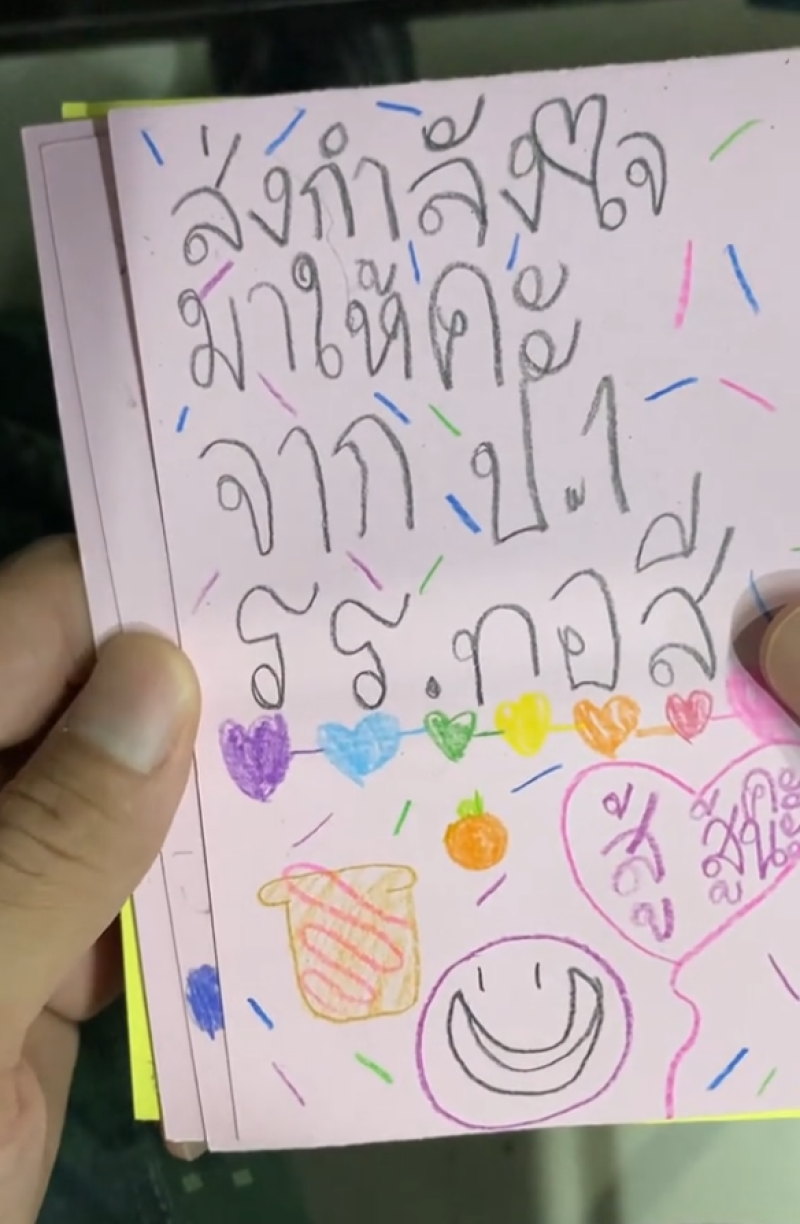 ส่งกำลังใจ
มาให้ค่ะ
จาก ป.1
รร.ทอสี
สู้ สู้นะคะ